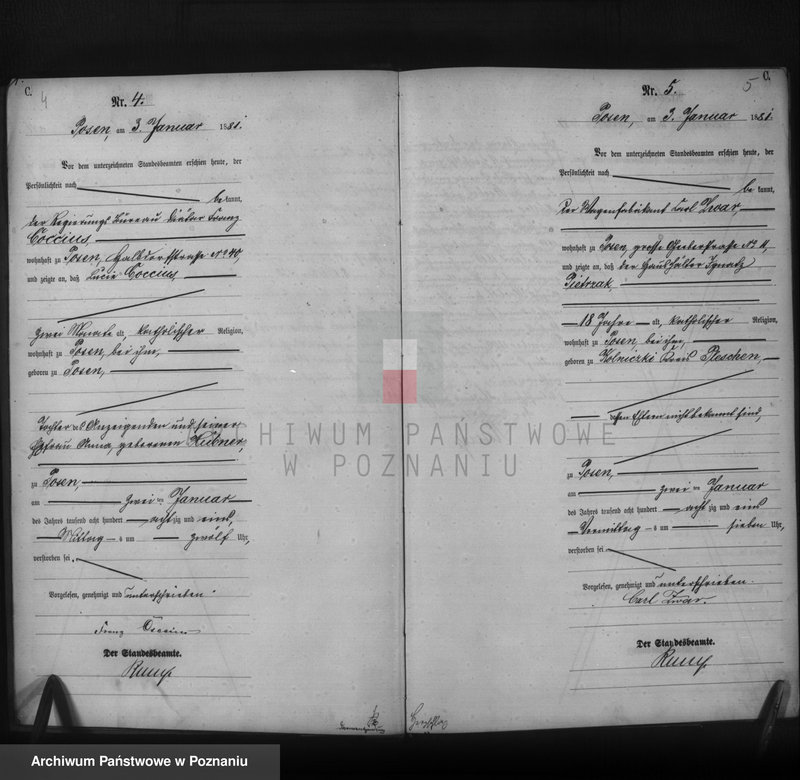 C.
4
Nr. 4.
Posen, am 3. Januar 1881.
Vor dem unterzeichneten Standesbeamten erschien heute, der
Persönlichkeit nach
bekannt,
der Regierungs Büreau Diätar Franz
Coccius,
wohnhaft zu Posen, Halbdorfstraße No 40,
und zeigte an, daß Lucie Coccius,
zwei Monate alt, katholischer Religion,
wohnhaft zu Posen, bei ihm,
geboren zu Posen,
Tochter des Anzeigenden und seiner
Ehefrau Anna, geborenen Hübner,
zu Posen,
am zwei ten Januar
des Jahres tausend acht hundert achtzig und eins,
Mittags um zwölf Uhr,
verstorben sei.
Vorgelesen, genehmigt und unterschrieben.
Franz Coccius
Der Standesbeamte.
Rump
C.
5
Nr. 5.
Posen, am 3. Januar 1881.
Vor dem unterzeichneten Standesbeamten erschien heute, der
Persönlichkeit nach
bekannt,
der Wagenfabrikant Carl
wohnhaft zu Posen, große No 11,
und zeigte an, daß der Haushälter Ignatz
Pietrzak,
18 Jahre alt, katholischer Religion,
wohnhaft zu Posen, bei ihm,
geboren zu Kolniczki Kreis Pleschen,
dessen Eltern nicht bekannt sind,
zu Posen,
am zwei ten Januar
des Jahres tausend acht hundert achtzig und eins
Vormittags um sieben Uhr,
verstorben sei.
Vorgelesen, genehmigt und unterschrieben.
Carl
Der Standesbeamte.
Rump
ARCHIWUM PAŃSTWOWE
W POZNANIU
Archiwum Państwowe w Poznaniu